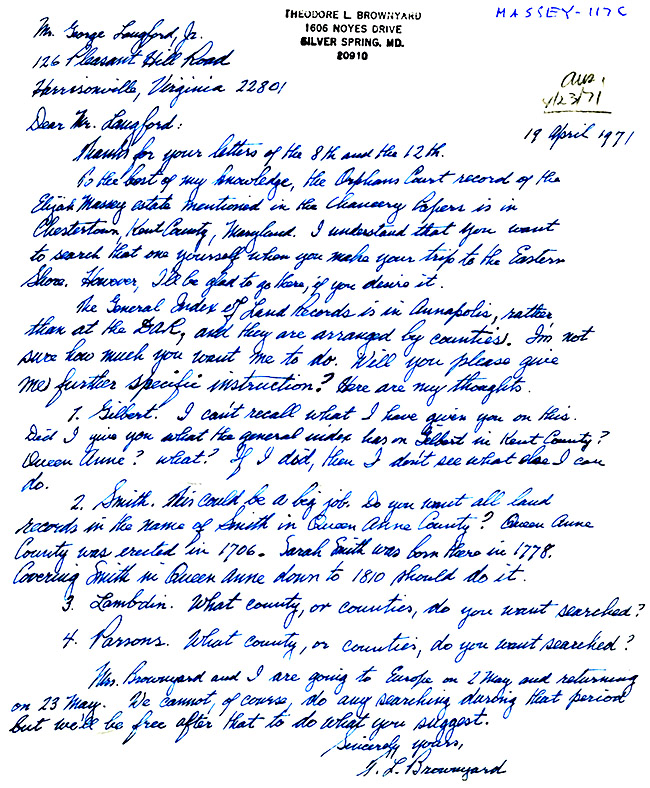 THEODORE L. BROWNYARD
1606 NOYES DRIVE
SILVER SPRING, MD.
20910
MASSEY-117C
Mr. George Langford, Jr.
126 Pleasant Hill Road
Harrisonville, Virginia 22801
Ans.
4/23/71
19 April 1971
Dear Mr. Langford:
Thanks for your letters of the 8th and the 12th.
To the best of my knowledge, the Orphans Court record of the
Elijah Massey estate mentioned in the Chancery Papers is in
Chestertown, Kent County, Maryland. I understand that you want
to search that one yourself when you make your trip to the Eastern
Shore. However, I'll be glad to go there, if you desire it.
The General Index of Land Records is in Annapolis, rather
than at the DAR, and they are arranged by counties. I'm not
sure how much you want me to do. Will you please give
me further specific instruction? Here are my thoughts.
1. Gilbert. I can't recall what I have given you on this.
Did I give you what the general index has on Gilbert in Kent County?
Queen Anne? What? If I did, then I don't see what else I can
do.
2. Smith. This could be a big job. Do you want all land
records in the name of Smith in Queen Anne County? Queen Anne
County was erected in 1706. Sarah Smith was born there in 1778.
Covering Smith in Queen Anne down to 1810 should do it.
3. Lambdin. What county, or counties, do you want searched?
4. Parsons. What county, or counties, do you want searched?
Mrs. Brownyard and I are going to Europe on 2 May and returning
on 23 May. We cannot, of course, do any searching during that period
but we'll be free after that to do what you suggest.
Sincerely yours,
T. L. Brownyard